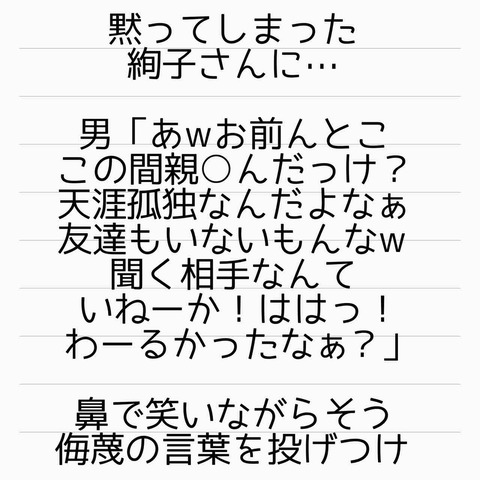 黙ってしまった
絢子さんに…
男「あwお前んとこ
この間親○んだっけ？
天涯孤独なんだよなぁ
友達もいないもんなw
聞く相手なんて
いねーか！ははっ！
わーるかったなぁ？」
鼻で笑いながらそう
侮蔑の言葉を投げつけ